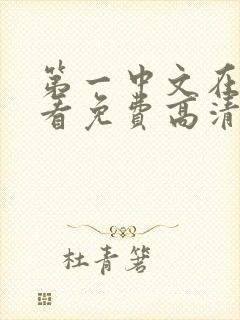 第一中文在
看免费高清
杜青箬